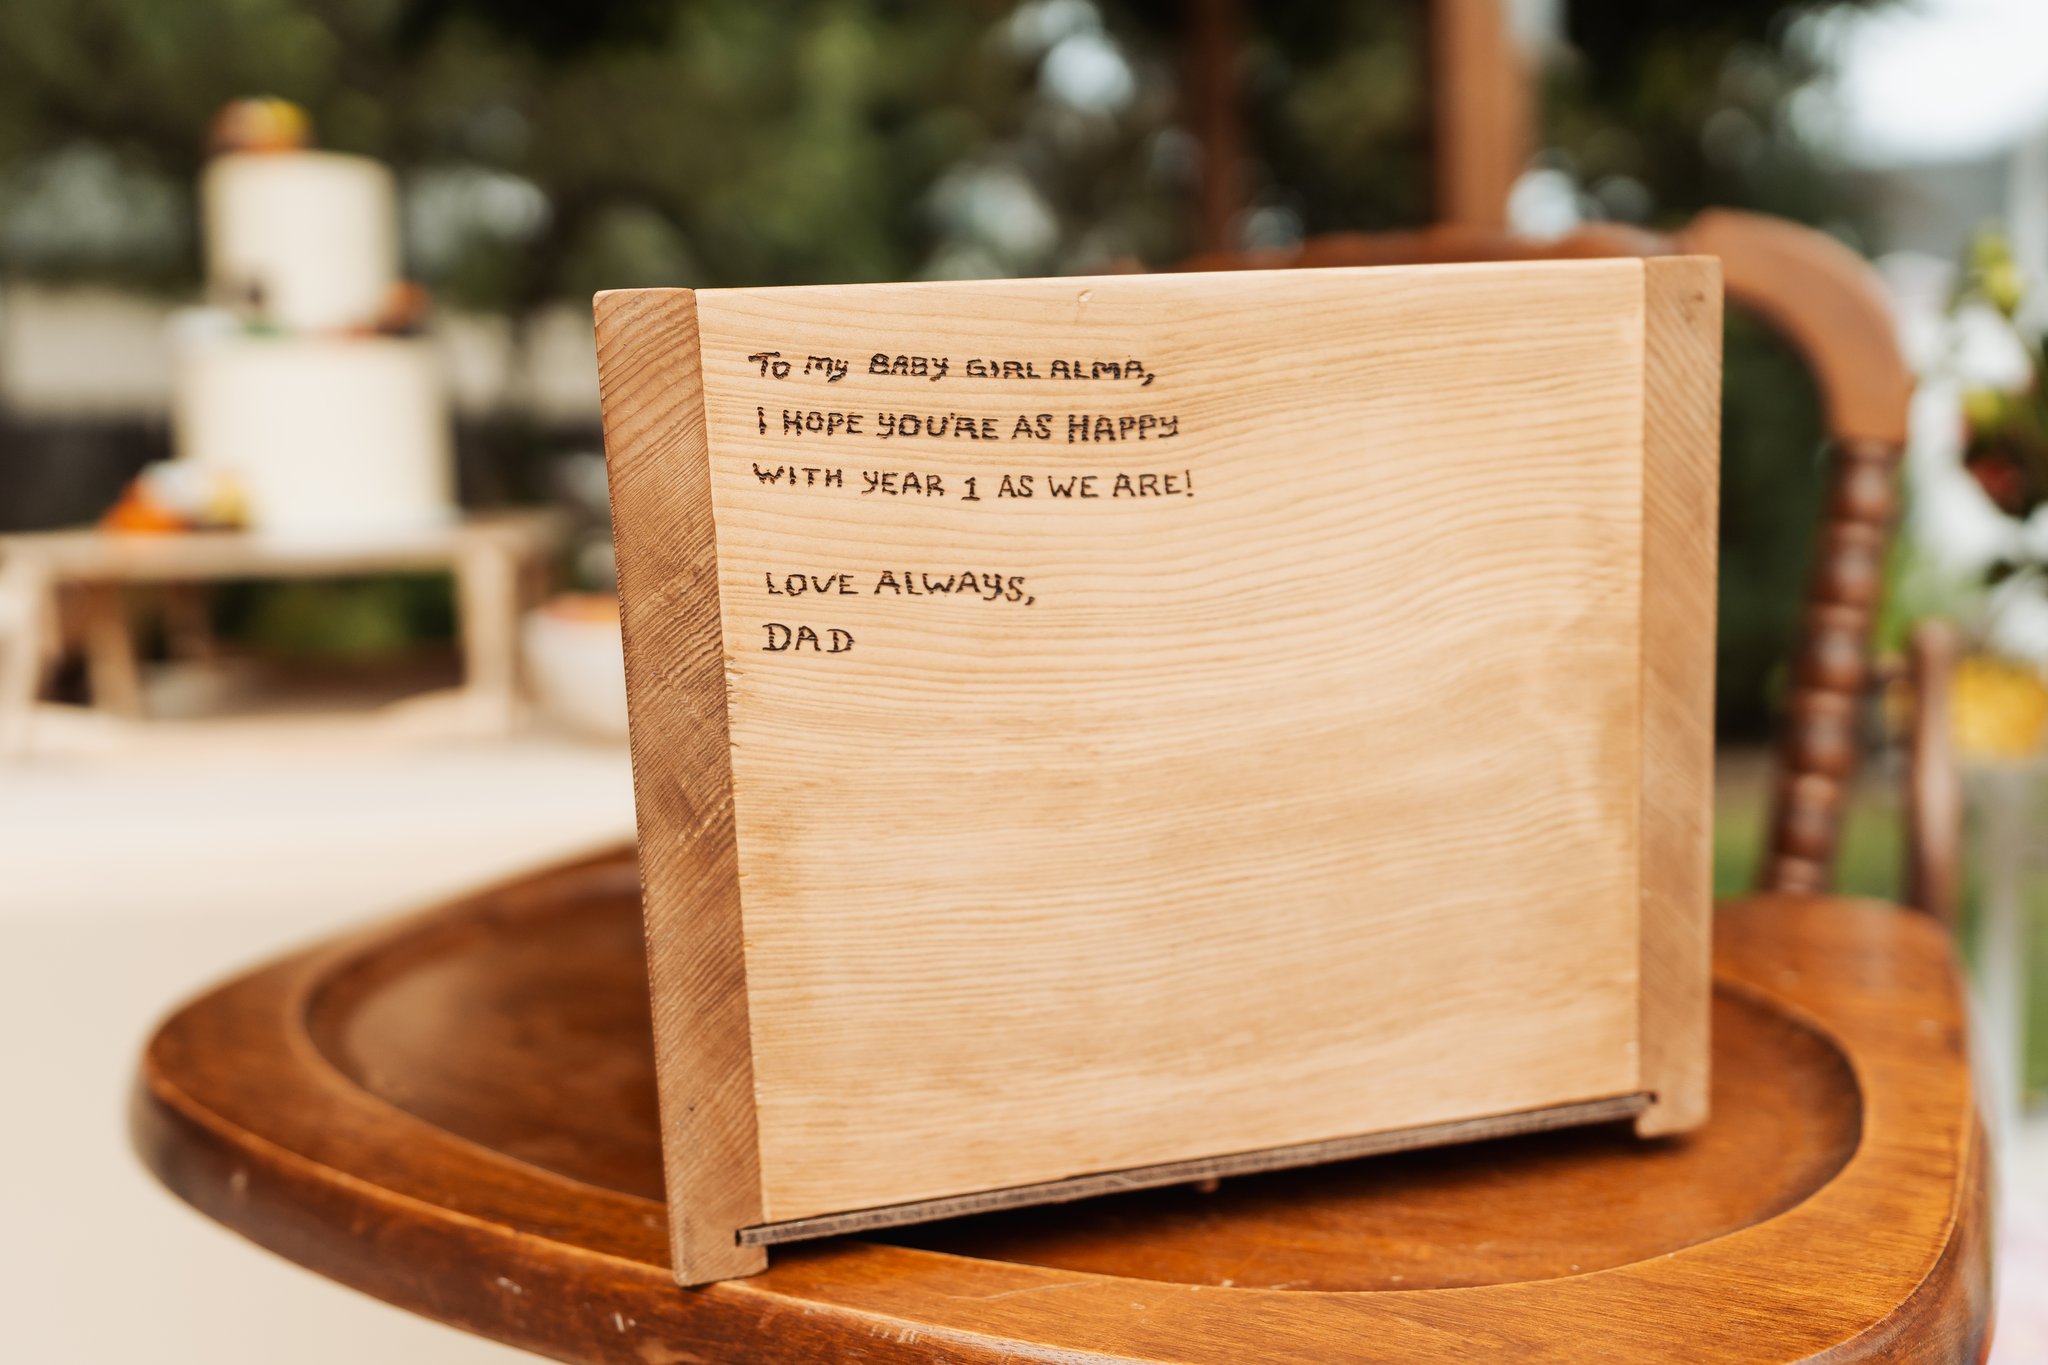 To My BABY GIRL ALMA,
I HOPE YOU'RE AS HAPPY
WITH YEAR 1 AS WE ARE!
LOVE ALWAYS,
DAD